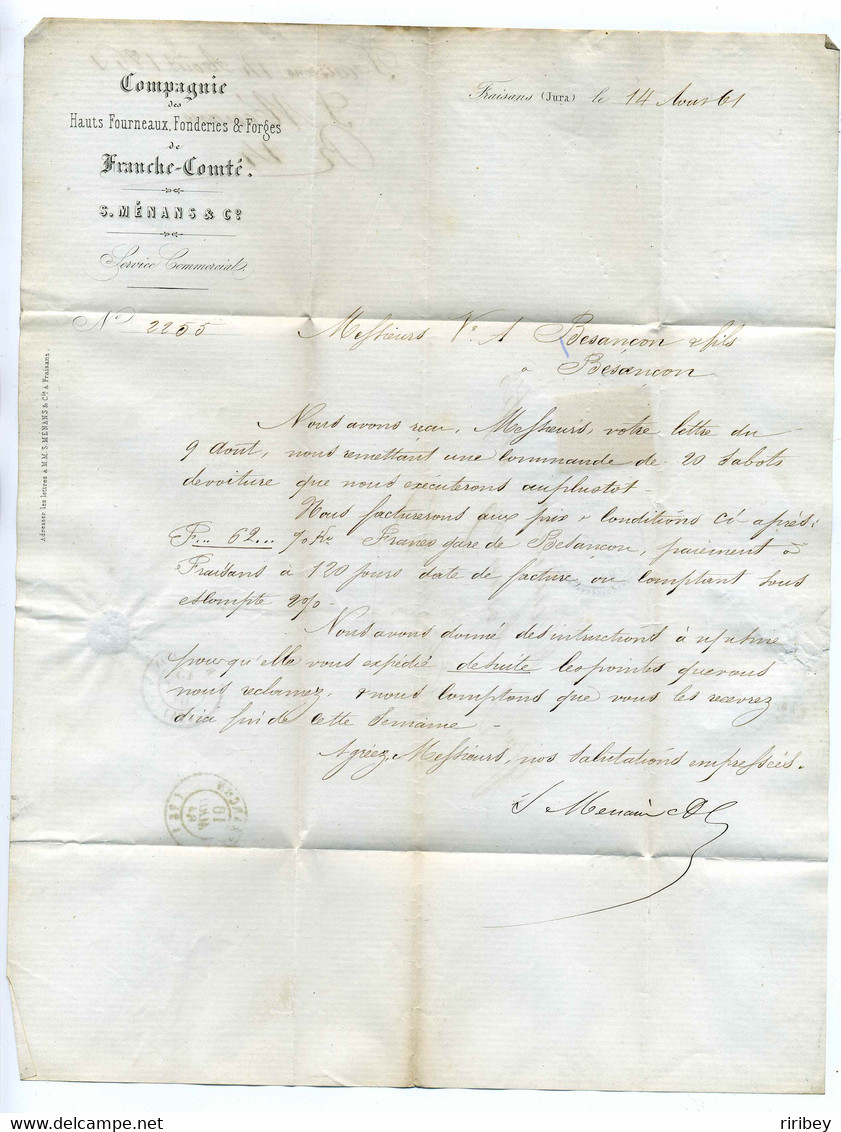 Compagnie
des
Hauts Fourneaux, Fonderies & Forges
de
Franche-Comté.
S. MÉNANS & Cº
Service Commercial.
Fraisans (Jura) le 14 Aout 61
Nº 2255
Messieurs Vᵉ A Besançon & fils
à Besançon
Adresser les lettres à M.M. S. MÉNANS & Cie à Fraisans.
Nous avons reçu, Messieurs, votre lettre du
9 Aout, nous remettant une commande de 20 Sabots
de voiture que nous exécuterons au plustot.
Nous facturerons aux prix & conditions ci après:
F... 62... % Kº Franco gare de Besançon, paiement à
Fraisans à 120 jours date de facture, ou comptant sous
escompte 2%.
Nous avons donné des instructions à
pour qu'elle vous expédié de suite les pointes que vous
nous reclamez, & nous comptons que vous les recevrez
d'ici fin de cette Semaine.
Agréez, Messieurs, nos salutations empressées.
S Menans & Cie
riribey